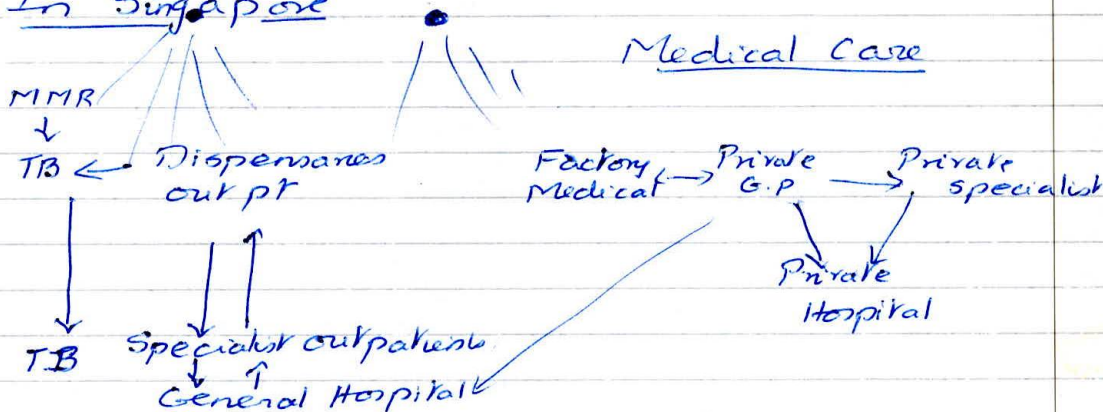 In Singapore
Medical Care
MMR
TB Dispensaries Factory Private Private
out pt Medical G.P specialist
Private
Hospital
TB Specialist outpatients
General Hospital